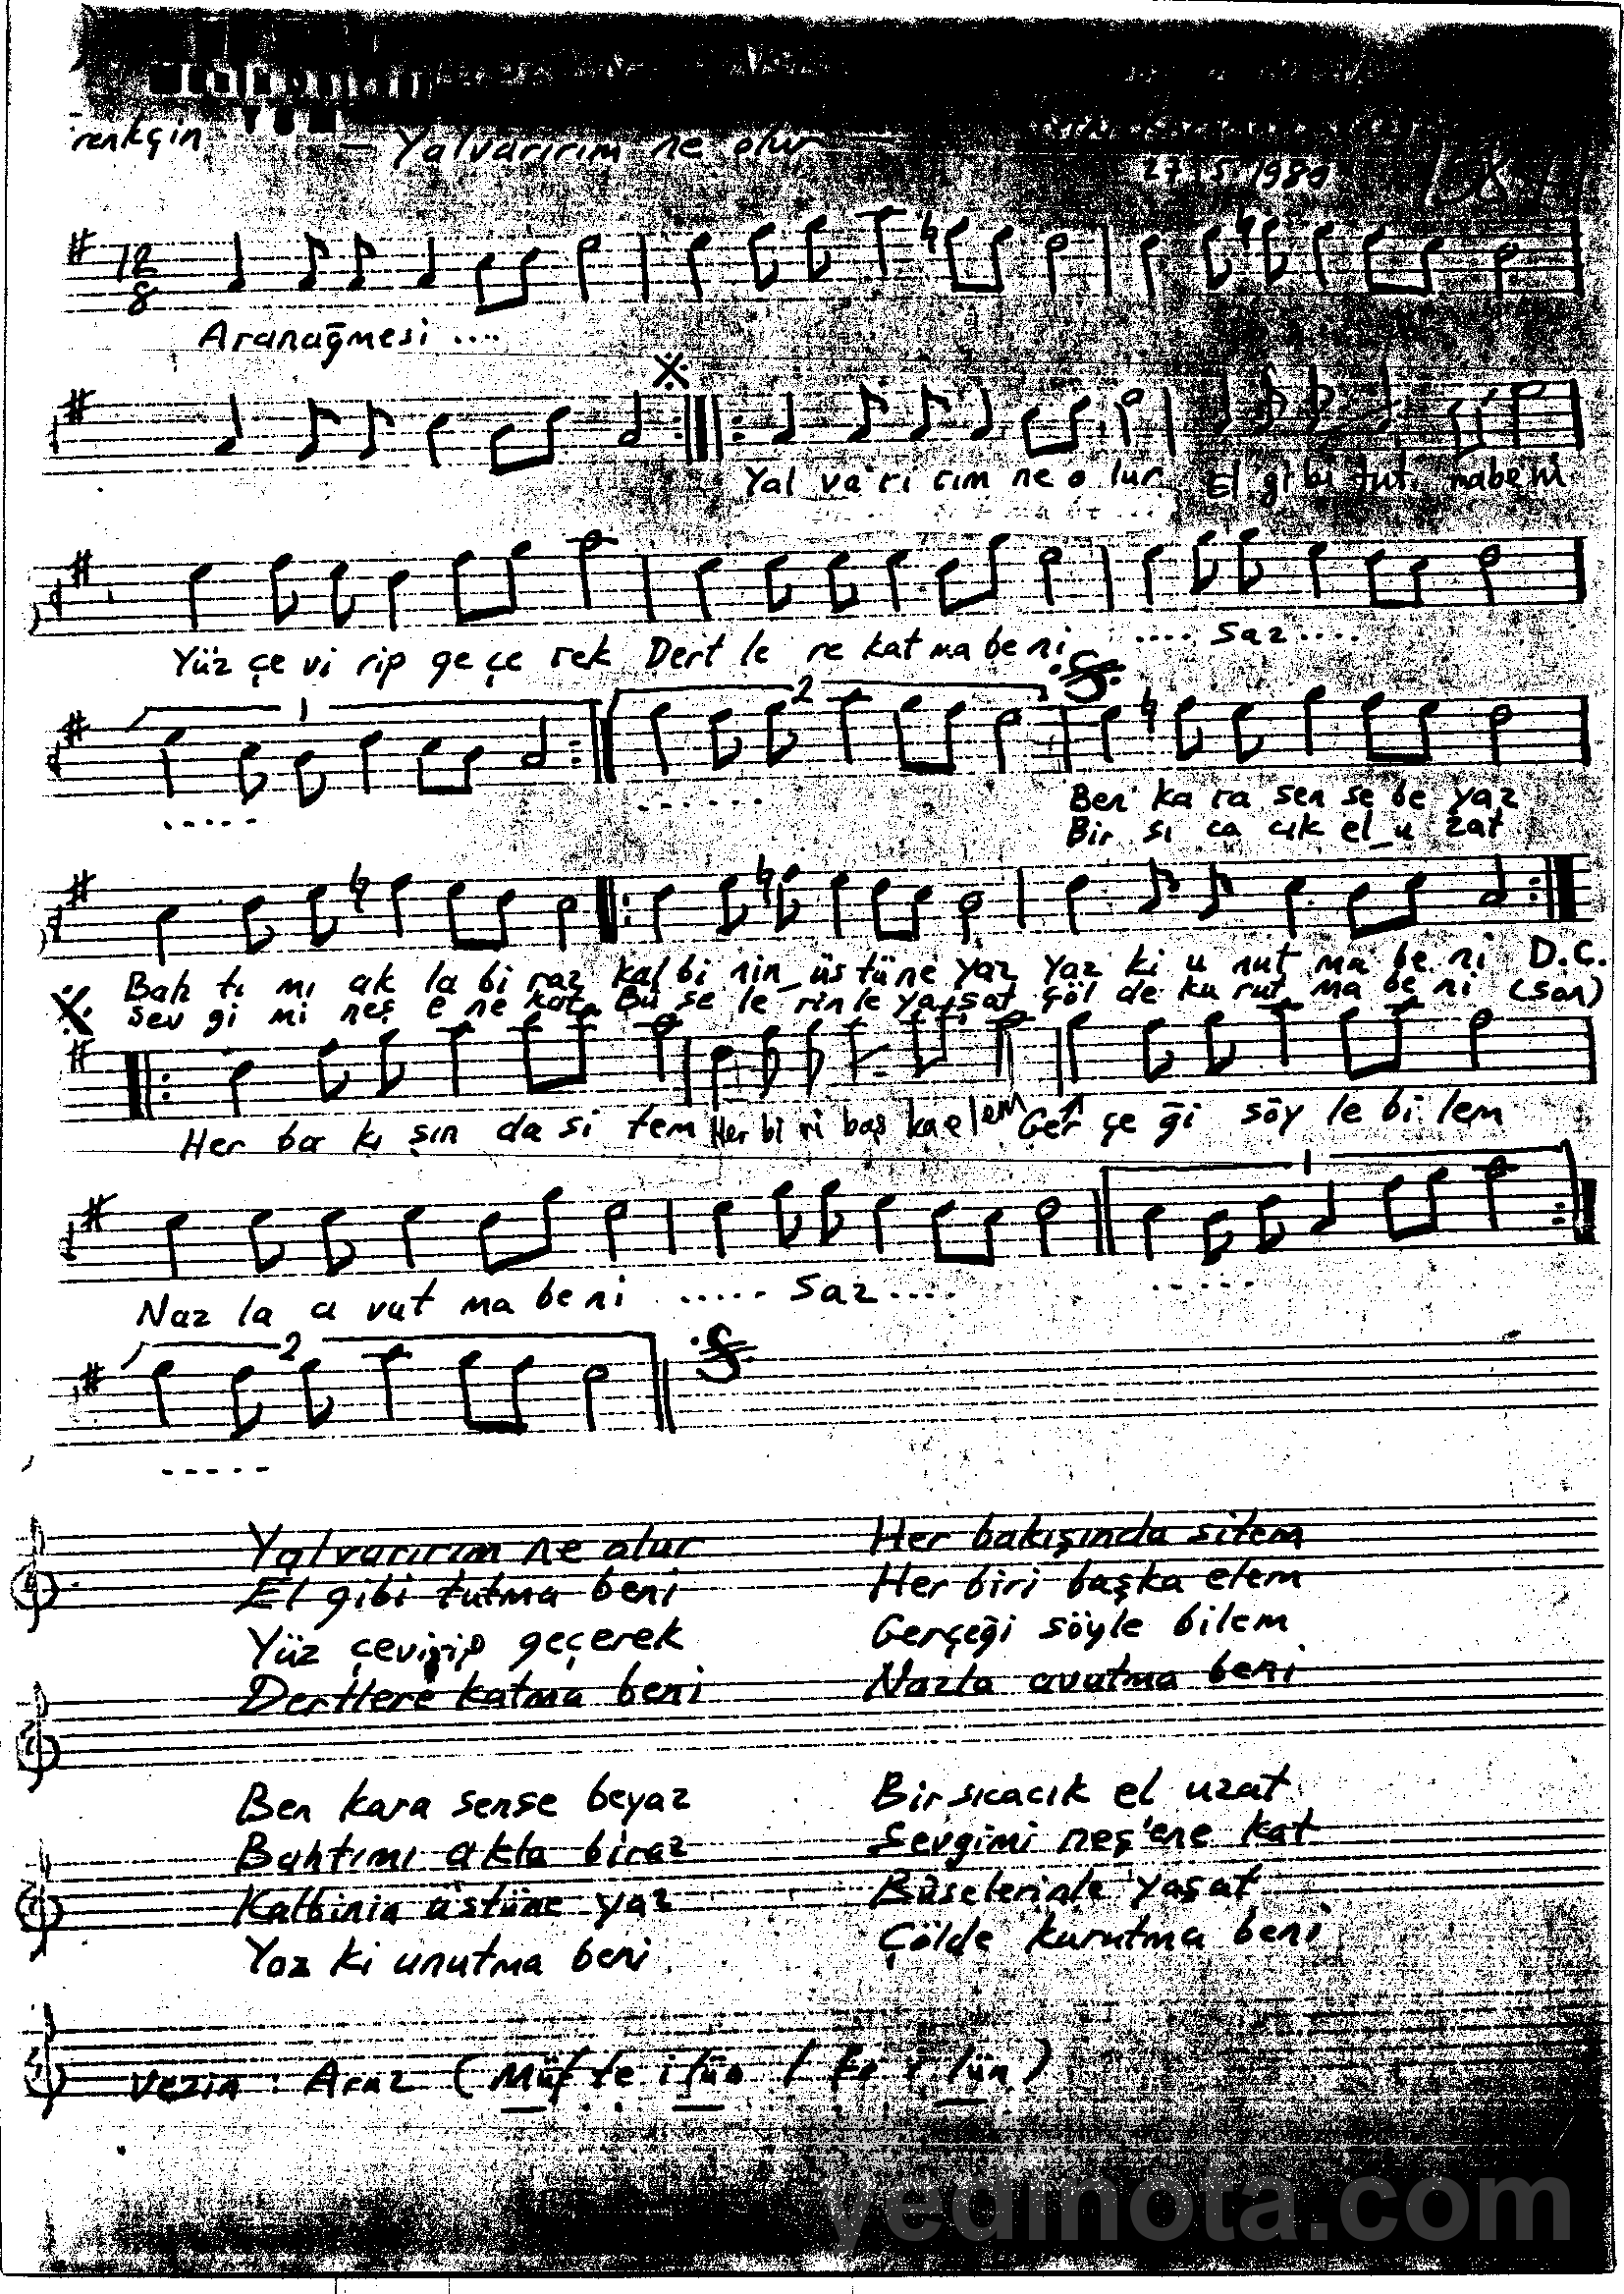 renkçin
— Yalvarırım ne olur —
27.5.1980
12
8
Aranağmesi ....
Yal va rı rım ne o lur El gi bi tut ma be ni
Yüz çe vi rip ge çe rek Dert le re kat ma be ni .... Saz ....
1
2
......
......
Ben ka ra sen se be yaz
Bir sı ca cık el u zat
Bah tı mı ak la bi raz kal bi nin üs tü ne yaz Yaz ki u nut ma be ni D.C.
Sev gi mi neş e ne kat Bu se le rin le ya şat çöl de ku rut ma be ni (Son)
Her ba kı şın da si tem Her bi ri baş ka e lem Ger çe ği söy le bi lem
1
Naz la a vut ma be ni ..... Saz ....
......
2
.....
Yalvarırım ne olur
El gibi tutma beni
Yüz çevirip geçerek
Dertlere katma beni
Her bakışında sitem
Her biri başka elem
Gerçeği söyle bilem
Nazla avutma beni
Ben kara sense beyaz
Bahtımı akla biraz
Kalbinin üstüne yaz
Yaz ki unutma beni
Bir sıcacık el uzat
Sevgimi neş'ene kat
Bûselerinle yaşat
Çölde kurutma beni
Vezin : Araz (Müf te i lün / Fa i lün)
yedinota.com